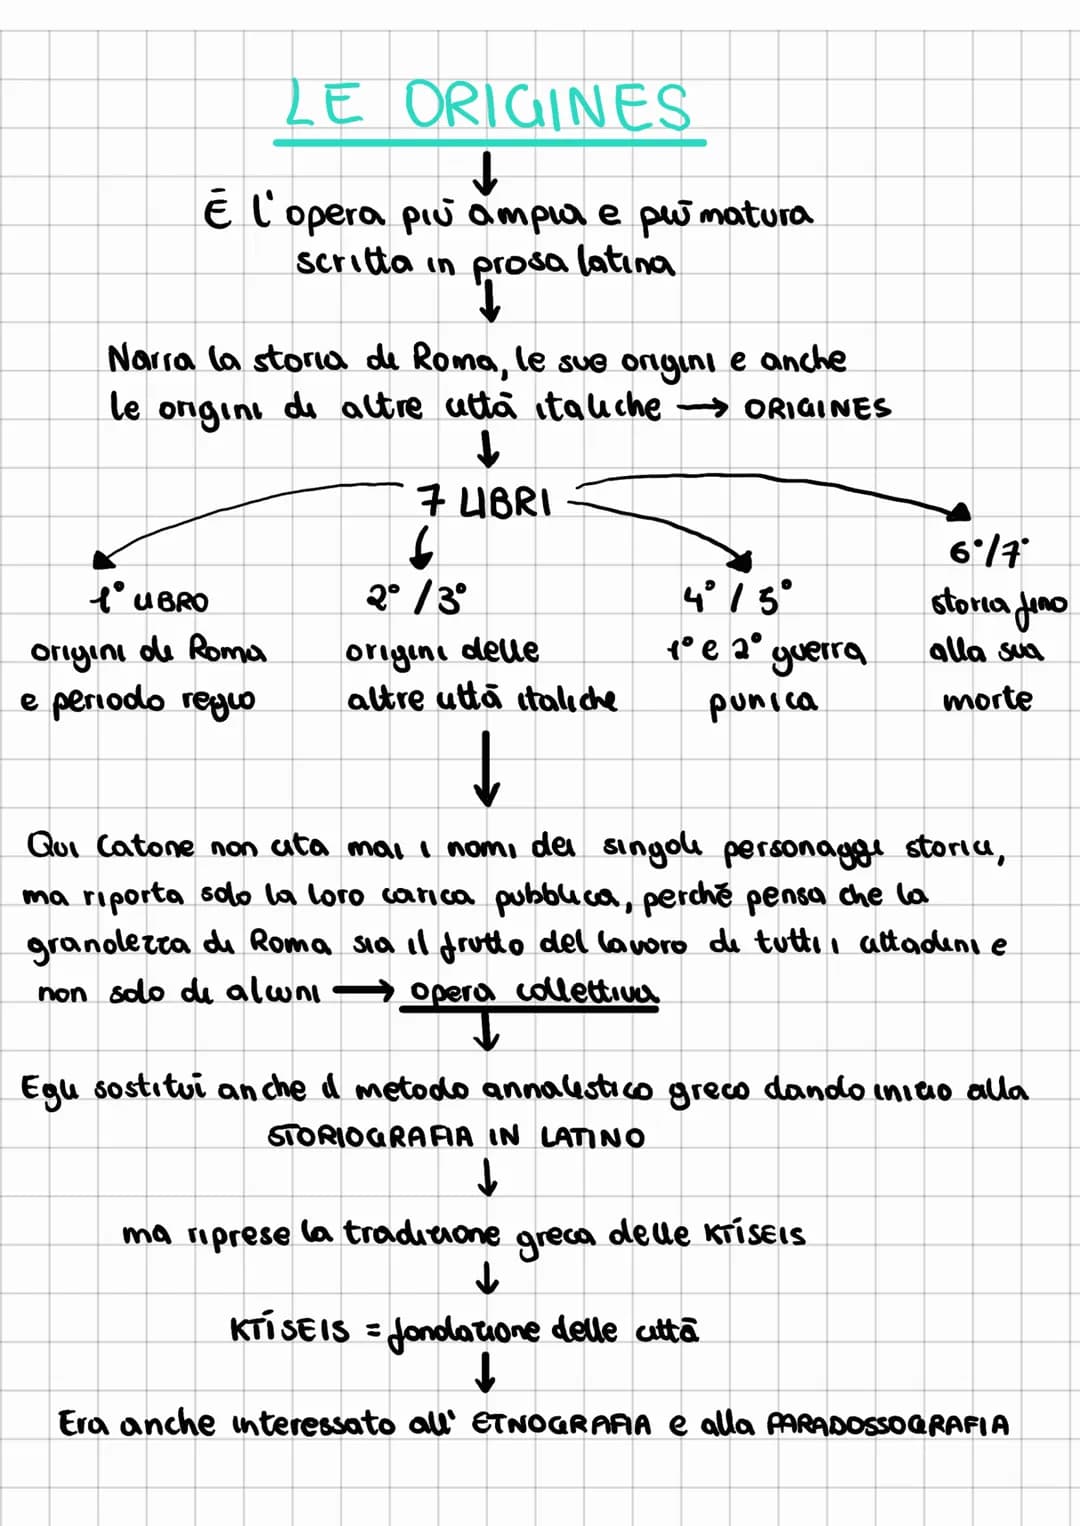 LE ORIGINES
È l'opera più ampia e più matura
scritta in prosa latina
Narra la storia di Roma, le sue origini e anche
le origini di altre città italiche → ORIGINES
7 LIBRI
1° LIBRO
origini di Roma
e periodo regio
2° / 3°
origini delle
altre città italiche
4° / 5°
1° e 2° guerra
punica
6°/7°
storia fino
alla sua
morte
Qui Catone non cita mai i nomi dei singoli personaggi storici,
ma riporta solo la loro carica pubblica, perché pensa che la
grandezza di Roma sia il frutto del lavoro di tutti i cittadini e
non solo di alcuni → opera collettiva
Egli sostituì anche il metodo annalistico greco dando inizio alla
STORIOGRAFIA IN LATINO
ma riprese la tradizione greca delle KTÍSEIS
KTÍSEIS = fondazione delle città
Era anche interessato all' ETNOGRAFIA e alla PARADOSSOGRAFIA